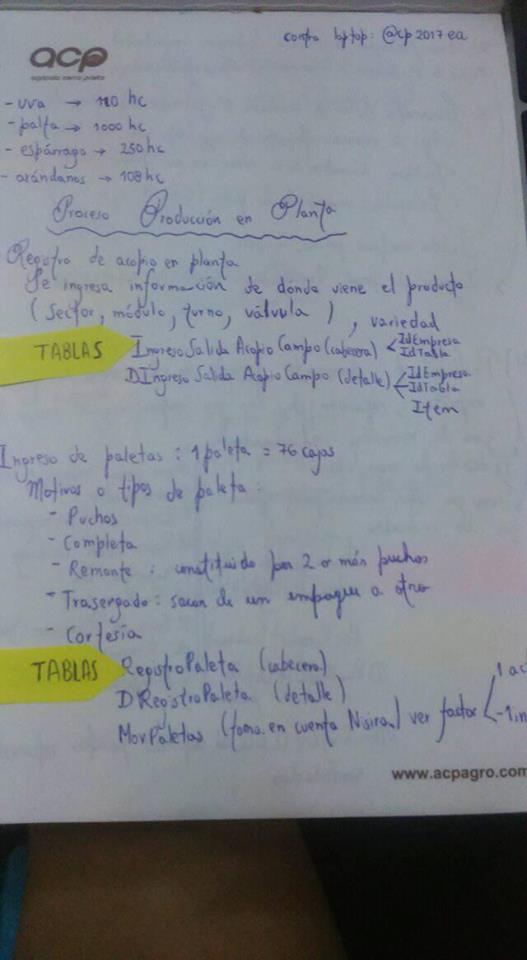 contra laptop: @cp2017ea
acp
agrícola cerro prieto
- uva → 110 hc
- palta → 1000 hc
- espárrago → 250 hc
- arándanos → 108 hc
Proceso Producción en Planta
Registro de acopio en planta
Se ingresa información de donde viene el producto
(Sector, módulo, turno, válvula), variedad
TABLAS
IngresoSalida AcopioCampo (cabecera) < IdEmpresa
IdTabla
DIngresoSalida AcopioCampo (detalle) < IdEmpresa
IdTabla
Item
Ingreso de paletas : 1 paleta = 76 cajas
Motivos o tipos de paleta:
- Puchos
- Completa
- Remonte : constituido por 2 o más puchos
- Trasergado : sacan de un empaque a otro
- Cortesía
TABLAS
RegistroPaleta (cabecera)
DRegistroPaleta (detalle)
MovPaletas (toma en cuenta Nsiran) ver factor < 1 ac
-1 in
www.acpagro.com